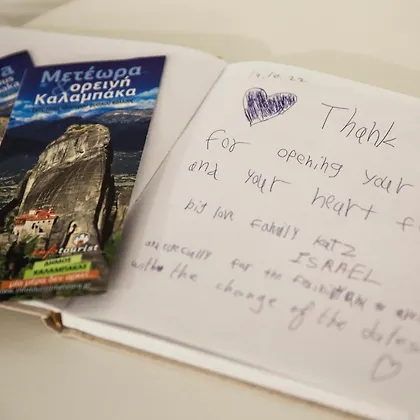 Μετέωρα
& ορεινή
Καλαμπάκα
tourist
ΔΗΜΟΣ
ΚΑΛΑΜΠΑΚΑΣ
μια μέρα δεν αρκεί
Thank
for opening your
and your heart
big love family Katz
ISRAEL
for the
with the change of the dates